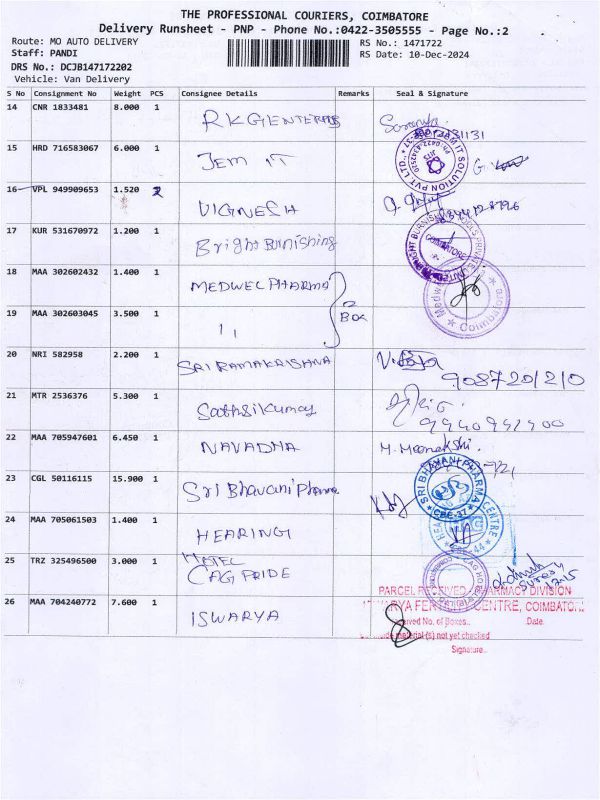 THE PROFESSIONAL COURIERS, COIMBATORE
Delivery Runsheet - PNP - Phone No.:0422-3505555 - Page No.:2
Route: MO AUTO DELIVERY RS No.: 1471722
Staff: PANDI RS Date: 10-Dec-2024
DRS No.: DCJB147172202
Vehicle: Van Delivery
S No Consignment No Weight PCS Consignee Details Remarks Seal & Signature
14 CNR 1833481 8.000 1
15 HRD 716583067 6.000 1 JEM IT
16 VPL 949909653 1.520 2 VIGNESH
17 KUR 531670972 1.200 1 Bright Burnishing
18 MAA 302602432 1.400 1 MEDWEL PHARMA
19 MAA 302603045 3.500 1 11 2 BOX
20 NRI 582958 2.200 1 SRI RAMAKRISHNA 9087201210
21 MTR 2536376 5.300 1
22 MAA 705947601 6.450 1 NAVADHA M. Meenakshi
23 CGL 50116115 15.900 1 Sri Bhavani Pharma SRI BHAVANI PHARMA CBE-37
24 MAA 705061503 1.400 1 HEARING CENTRE
25 TRZ 325496500 3.000 1 HOTEL
CAG PRIDE
26 MAA 704240772 7.600 1 ISWARYA
PARCEL RECEIVED - PHARMACY DIVISION
CENTRE, COIMBATORE
No. of Boxes.. Date.
material (s) not yet checked
Signature..